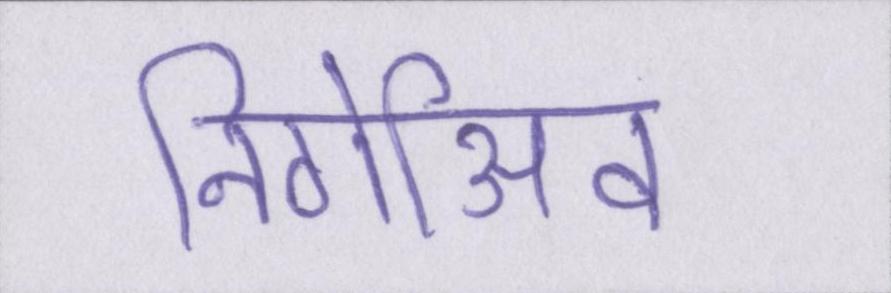 निगेअिव